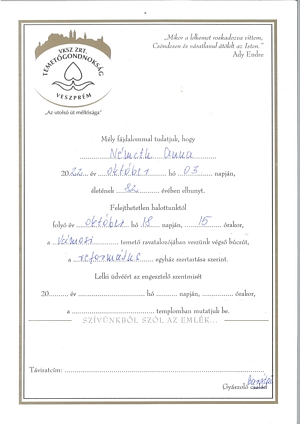 „Mikor a lelkemet roskadozva vittem,
Csöndesen és váratlanul átölelt az Isten.”
Ady Endre
VKSZ ZRT.
TEMETŐGONDNOKSÁG
VESZPRÉM
"Az utolsó út méltósága"
Mély fájdalommal tudatjuk, hogy
Németh Anna
2022 év október hó 03 napján,
életének 82 évében elhunyt.
Felejthetetlen halottunktól
folyó év október 18 napján, 15 órakor,
a Vámosi temető ravatalozójában veszünk végső búcsút,
a református egyház szertartása szerint.
Lelki üdvéért az engesztelő szentmisét
20 év hó napján, órakor,
a templomban mutatjuk be.
SZÍVÜNKBŐL SZÓL AZ EMLÉK...
Táviratcím:
Gyászoló